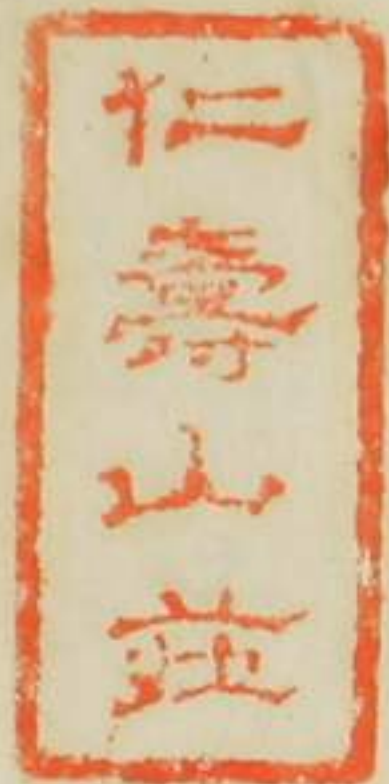 仁壽山莊